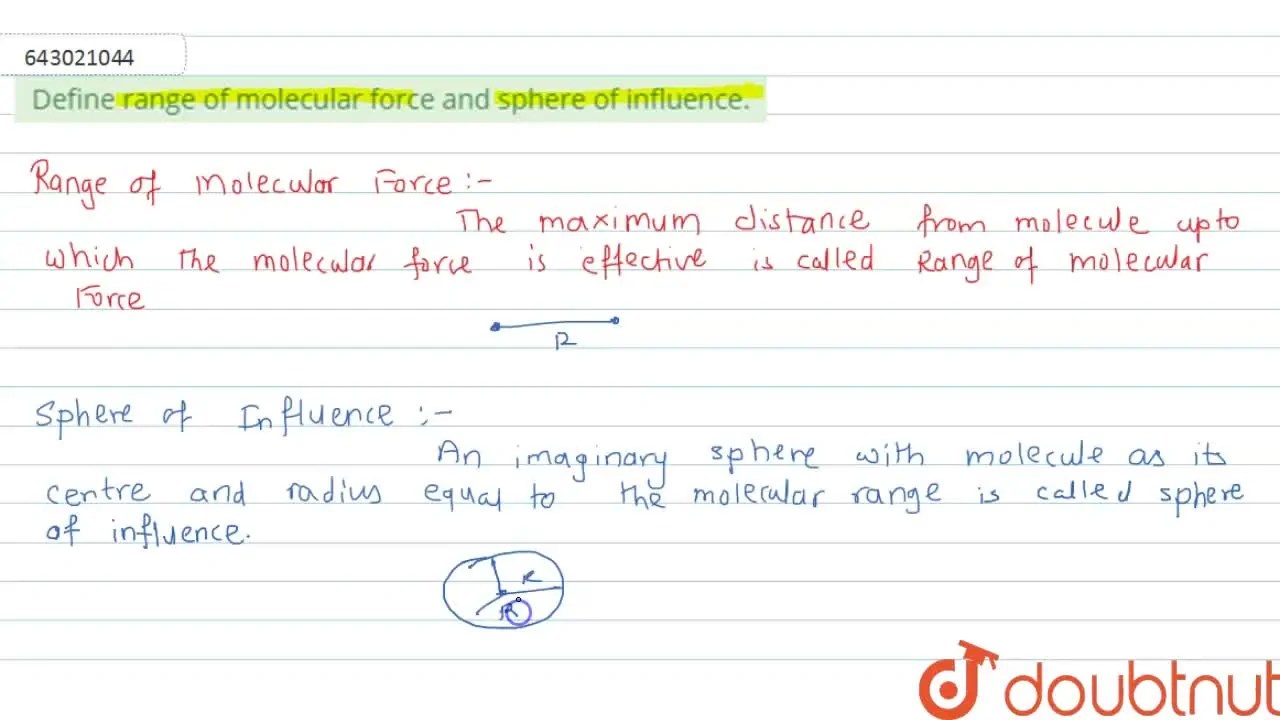 643021044
Define range of molecular force and sphere of influence.
Range of Molecular Force :-
The maximum distance from molecule upto
which the molecular force is effective is called Range of molecular
Force
R
Sphere of Influence :-
An imaginary sphere with molecule as its
centre and radius equal to the molecular range is called sphere
of influence.
R
R
doubtnut